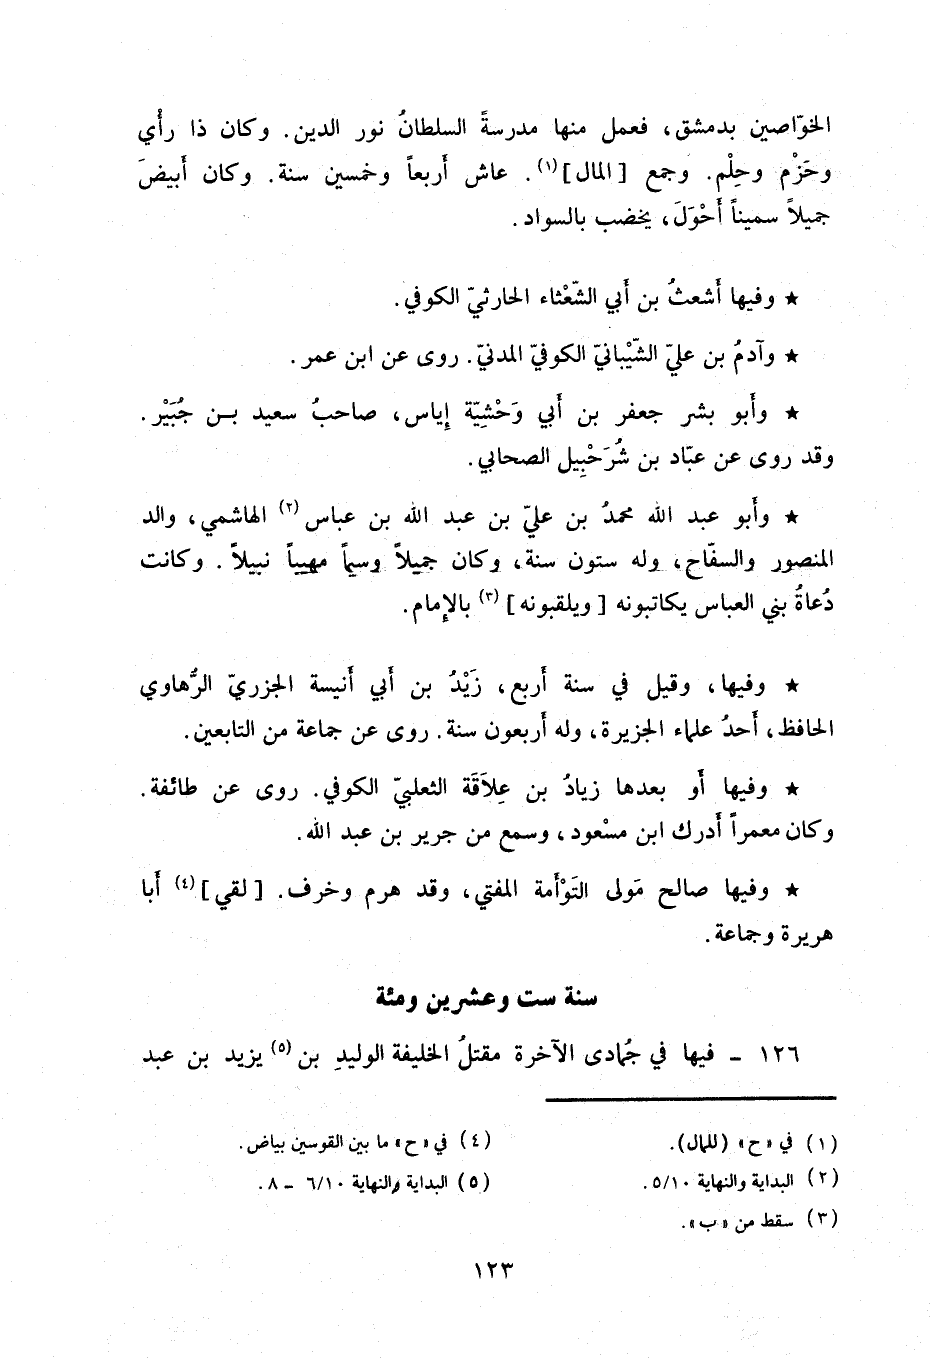 الخوّاصين بدمشق، فعمل منها مدرسةً السلطانُ نور الدين. وكان ذا رأْي
وحَزْم وحِلْم. وجمع [المال](١). عاش أَربعاً وخمسين سنة. وكان أَبيضَ
جميلاً سميناً أَحْوَلَ، يخضب بالسواد.
★ وفيها أَشعثُ بن أَبي الشّعْثاء الحارثيّ الكوفي.
★ وآدمُ بن عليّ الشّيْبانيّ الكوفيّ المدنيّ. روى عن ابن عمر.
★ وأَبو بشر جعفر بن أَبي وَحْشِيّة إِياس، صاحبُ سعيد بن جُبَيْر.
وقد روى عن عبّاد بن شُرَحْبِيل الصحابي.
★ وأَبو عبد الله محمدُ بن عليّ بن عبد الله بن عباس(٢) الهاشمي، والد
المنصور والسفّاح، وله ستون سنة، وكان جميلاً وسيماً مهيباً نبيلاً. وكانت
دُعاةُ بني العباس يكاتبونه [ويلقبونه](٣) بالإِمام.
★ وفيها، وقيل في سنة أَربع، زَيْدُ بن أَبي أَنيسة الجزريّ الرُّهاوي
الحافظ، أَحدُ علماء الجزيرة، وله أَربعون سنة. روى عن جماعة من التابعين.
★ وفيها أَو بعدها زيادُ بن عِلاَقَة الثعلبيّ الكوفي. روى عن طائفة.
وكان معمراً أَدرك ابن مسْعود، وسمع من جرير بن عبد الله.
★ وفيها صالح مَولى التَوْأَمة المفتي، وقد هرم وخرف. [لقي](٤) أَبا
هريرة وجماعة.
سنة ست وعشرين ومئة
١٢٦ - فيها في جُمادى الآخرة مقتلُ الخليفة الوليدِ بن(٥) يزيد بن عبد
(١) في «ح» (للمال).
(٢) البداية والنهاية ٥/١٠.
(٣) سقط من «ب».
(٤) في «ح» ما بين القوسين بياض.
(٥) البداية والنهاية ٦/١٠ - ٨.
١٢٣